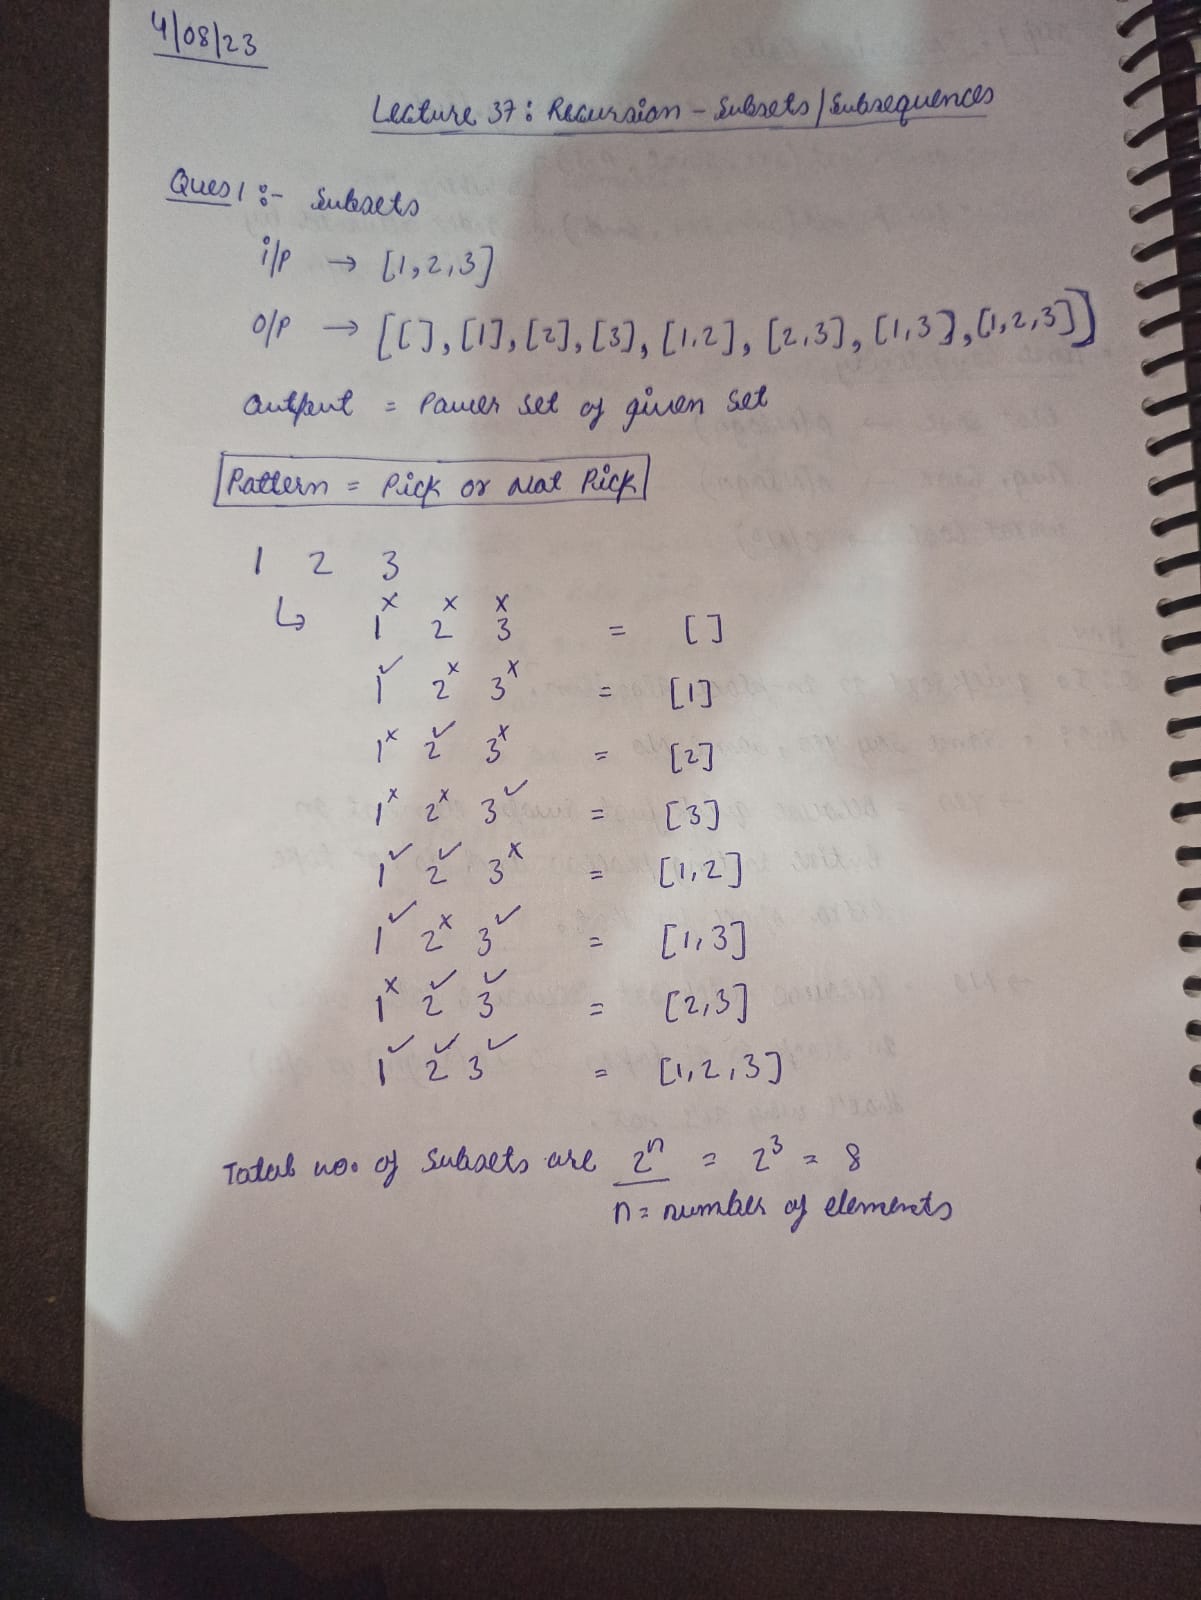 4/08/23
Lecture 37: Recursion - Subsets/Subsequences
Ques 1 :- Subsets
i/p → [1,2,3]
o/p → [[], [1], [2], [3], [1,2], [2,3], [1,3], [1,2,3]]
Output = Power set of given set
Pattern = Pick or Not Pick
1 2 3
↳ 1× 2× 3× = []
1✓ 2× 3× = [1]
1× 2✓ 3× = [2]
1× 2× 3✓ = [3]
1✓ 2✓ 3× = [1,2]
1✓ 2× 3✓ = [1,3]
1× 2✓ 3✓ = [2,3]
1✓ 2✓ 3✓ = [1,2,3]
Total no. of Subsets are 2ⁿ = 2³ = 8
n = number of elements